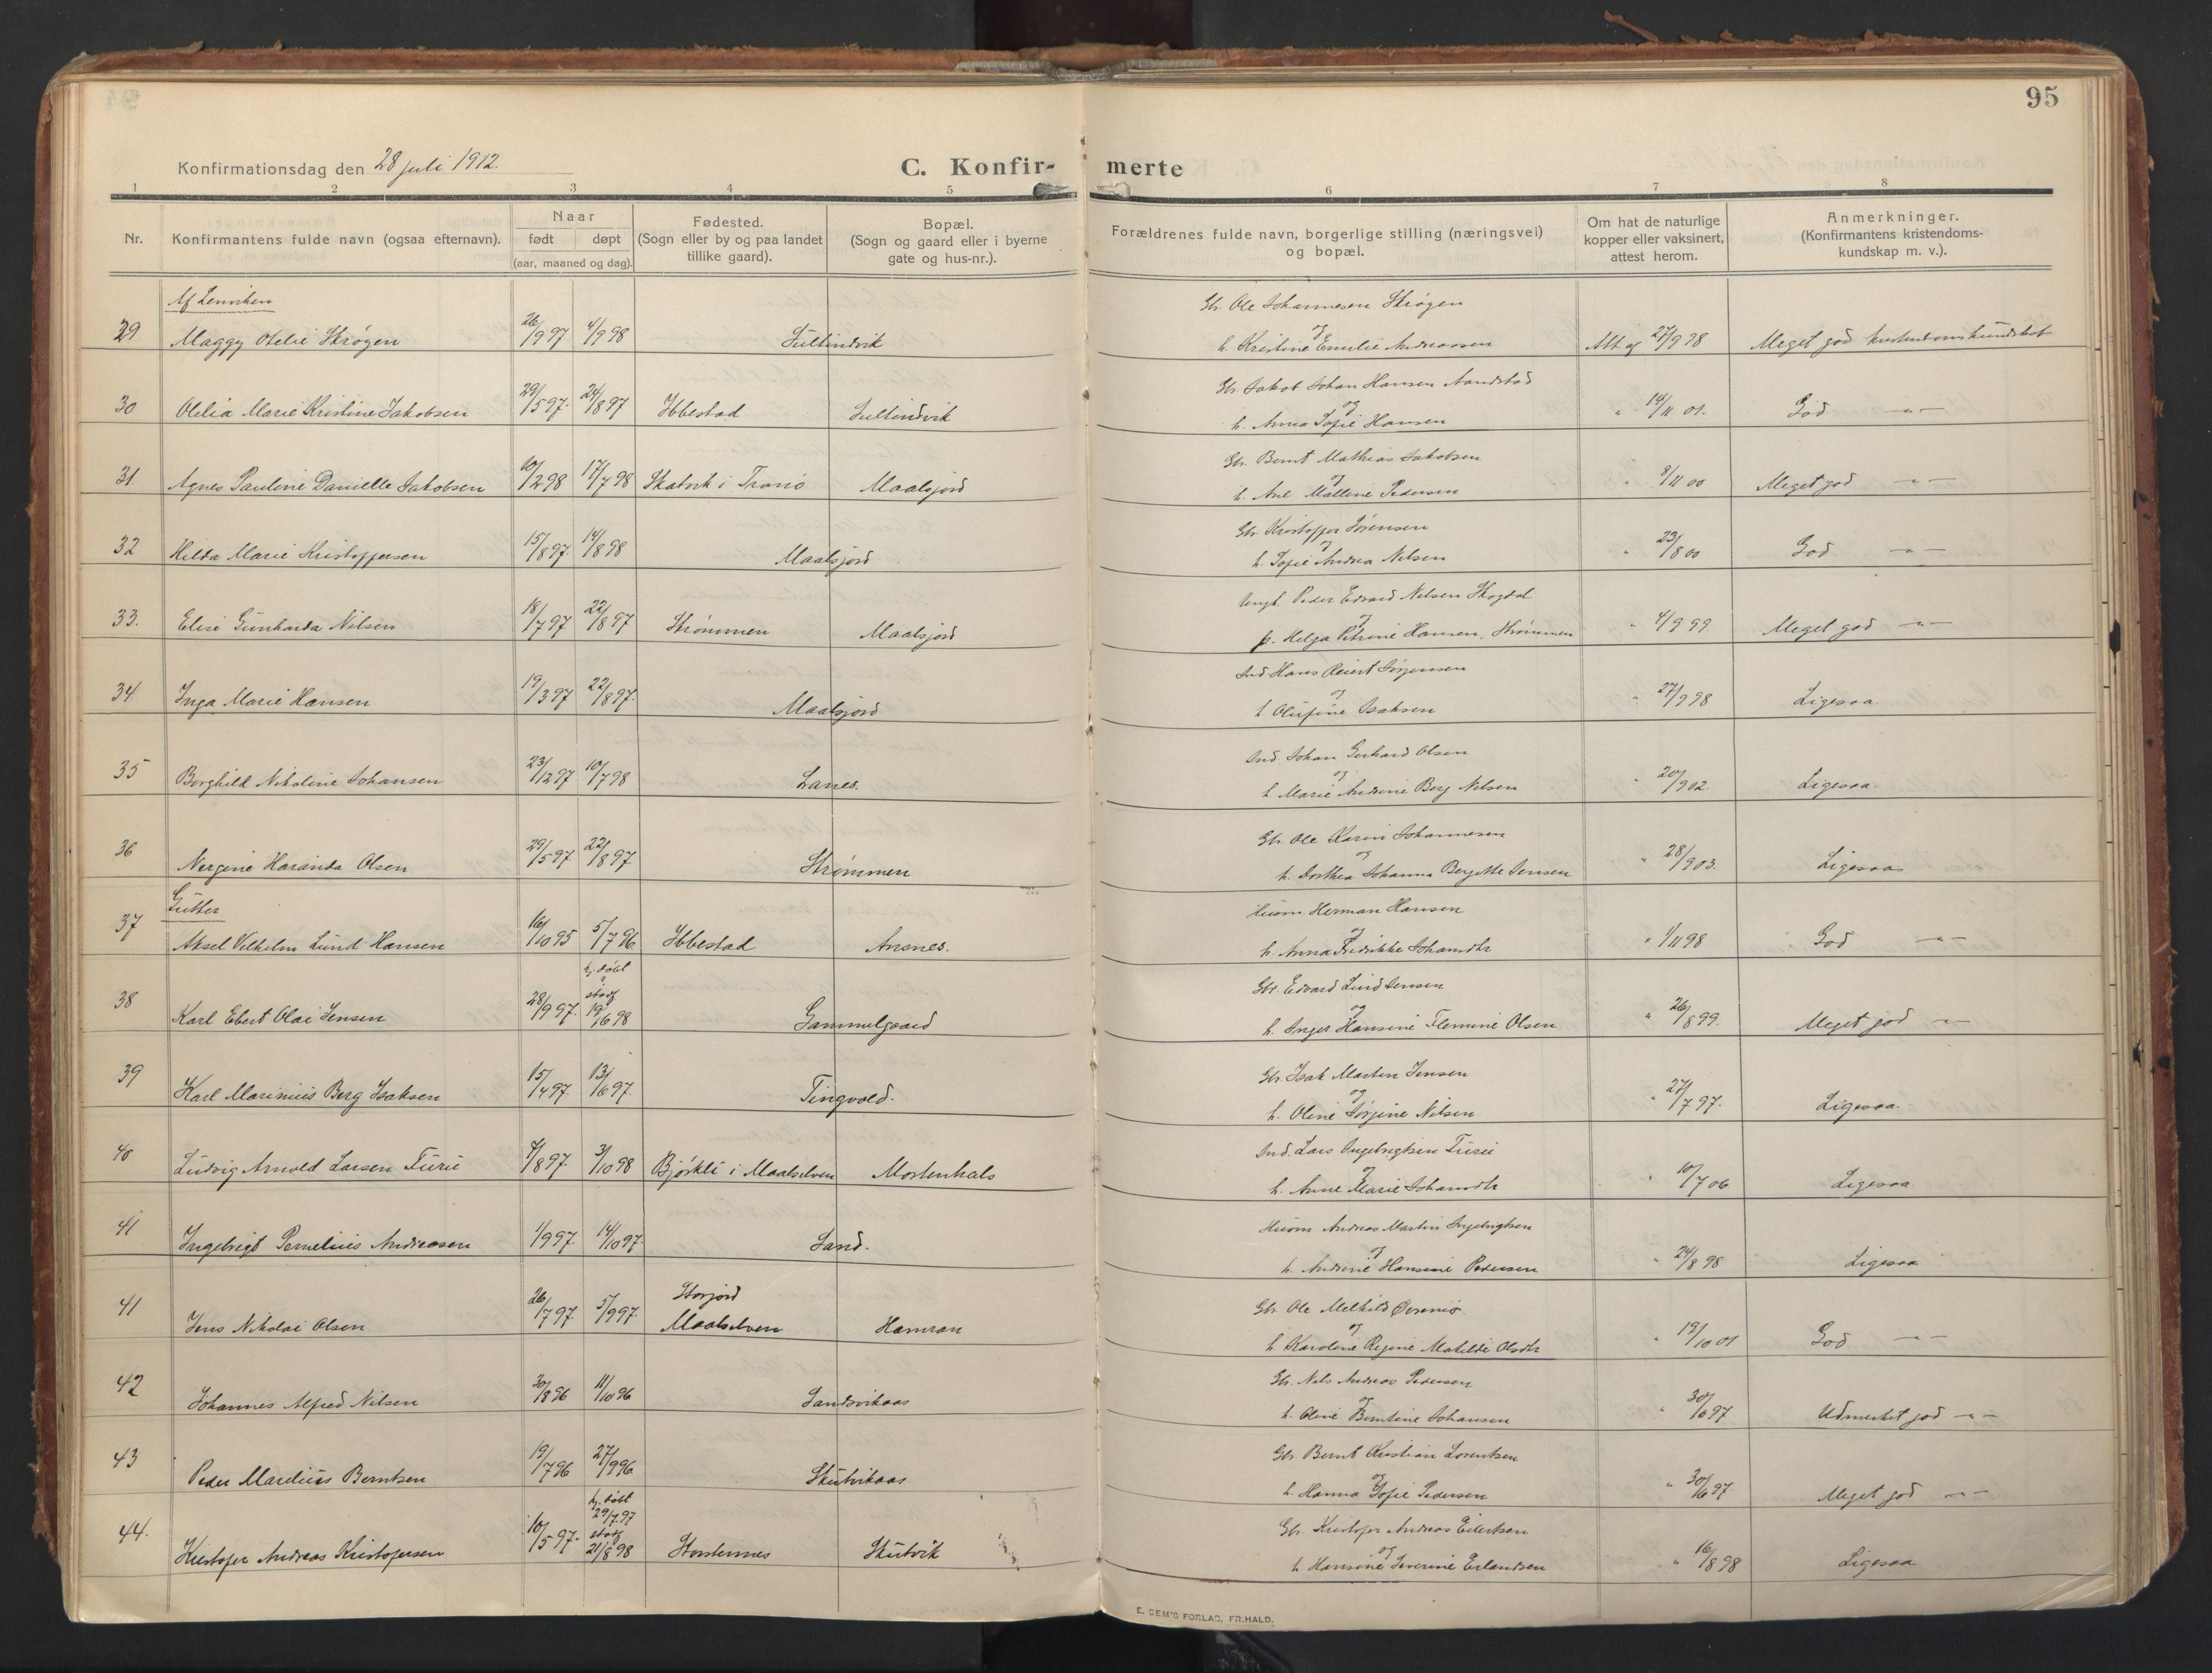 95
Konfirmationsdag den 28 juli 1912.
C. Konfir- merte
1 2 3 4 5 6 7 8
Nr. Konfirmantens fulde navn (ogsaa efternavn). Naar født døpt (aar, maaned og dag). Fødested. (Sogn eller by og paa landet tillike gaard). Bopæl. (Sogn og gaard eller i byerne gate og hus-nr.). Forældrenes fulde navn, borgerlige stilling (næringsvei) og bopæl. Om hat de naturlige kopper eller vaksinert, attest herom. Anmerkninger. (Konfirmantens kristendoms- kundskap m. v.).
Af Lenviken
Gbr. Ole Johannesen Skrøgen
29 Maggy Otelie Skrøgen 26/9 97 4/9 98 Sultindvik og h. Kristine Emilie Andreassen Att af 27/9 98 Meget god kristendomskundskab
Gbr. Jakob Johan Hansen Aandstad
30 Olelia Marie Kristine Jakobsen 29/5 97. 24/8 97 Ibbestad Sultindvik og h. Anna Sofie Hansen " 14/11 01. God -"-
Gbr. Bernt Mathias Jakobsen
31. Agnes Pauline Danielle Jakobsen 10/2 98 17/7 98 Skatvik i Tranø Maalsjord og h. Ane Malline Pedersen " 8/11 00 Meget god -"-
Gbr. Kristoffer Sørensen
32 Hilda Marie Kristoffersen 15/8 97. 14/8 98 Maalsjord og h. Sofie Andrea Nilsen " 23/8 00 God -"-
Ungk. Peder Edvard Nilsen Skogdal
33. Elise Gunharda Nilsen 18/7 97 22/8 97 Strømmen Maalsjord og p. Helga Petrine Hansen, Strømmen " 4/9 99. Meget god -"-
Ind. Hans Reiert Jørgensen
34 Inga Marie Hansen 19/3 97 22/8 97. Maalsjord og h. Olufine Isaksen " 27/9 98 Ligesaa.
Ind. Johan Gerhard Olsen
35 Borghild Nikoline Johansen 23/12 97 10/7 98 Lanes. og h. Marie Andrine Berg Nilsen " 20/9 02 Ligesaa.
Gbr. Ole Karin Johannesen
36 Nergine Haranda Olsen 29/5 97 22/8 97. Strømmen og h. Dorthea Johanna Bergitte Jensen " 28/9 03. Ligesaa
Gutter
Husm. Herman Hansen
37 Aksel Vilhelm Lund Hansen 16/10 95 5/7 96. Ibbestad Ansnes. og h. Anna Fredrikke Johansdtr " 1/11 98 God -"-
hj. døbt
Gbr. Edvard Lind Jensen
38 Karl Ebert Olai Jensen 28/9 97. stadf 19/6 98 Gammelgaard og h. Inger Hansine Flemine Olsen " 26/8 99. Meget god -"-
Gbr. Isak Martin Jensen
39 Karl Marinius Berg Isaksen 15/4 97. 13/6 97. Tingvold. og h. Oline Jørgine Nilsen " 27/7 97. Ligesaa.
Ind. Lars Ingebrigtsen Furu
40 Ludvig Arnold Larsen Furu 4/8 97. 3/10 98 Bjørkli i Maalselven Mortenhals og h. Anne Marie Johansdtr " 10/7 06 Ligesaa
Husm Andreas Martin Ingebrigtsen
41 Ingebrigt Pernelius Andreasen 1/9 97. 14/10 97. Sand. og h. Andrine Hansine Pedersen " 24/8 98 Ligesaa
Storjord
Gbr. Ole Melkild
41 Jens Nikolai Olsen 26/7 97. 5/9 97. Maalselven Hamran og h. Karoline Regine Matilde Olsdtr " 19/10 01 God -"-
Gbr. Nils Andreas Pedersen
42 Johannes Alfred Nilsen 30/8 96 11/10 96 Sandvikaas og h. Oline Berntine Johansen " 30/6 97 Udmerket god -"-
Gbr. Bernt Kristian Lorentsen
43 Peder Marelius Berntsen 19/7 96 27/9 96 Skutvikaas og h. Hanna Sofie Pedersen " 30/6 97 Meget god -"-
hj. døbt 29/7 97
Gbr. Kristofer Andreas Eilertsen
44. Kristofer Andreas Kristofersen 10/5 97. stadf 21/8 98 Storstennes Skutvik og h. Hansine Severine Erlandsen " 16/8 98 Ligesaa
E. SEM'S FORLAG, FR.HALD.